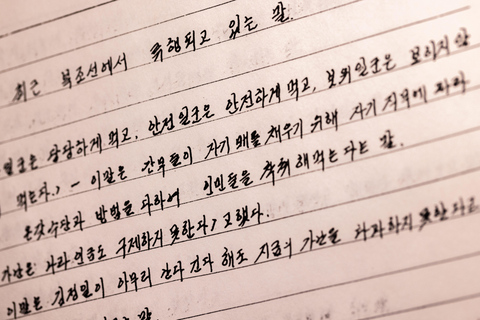 최근 북조선에서 류행되고 있는 말.
일군은 당당하게 먹고, 안전일군은 안전하게 먹고, 보위일군은 보이지 않
먹는다.》 - 이말은 간부들이 자기 배를 채우기 위해 자기 직무에 따라
온갖수단과 방법을 다하여 인민들을 착취해먹는다는 말.
가난은 나라 인금도 구제하지 못한다》고 했다.
이말은 김정일이 아무리 간다 긴다 해도 지금의 가난을 타파하지 못한다고
말.